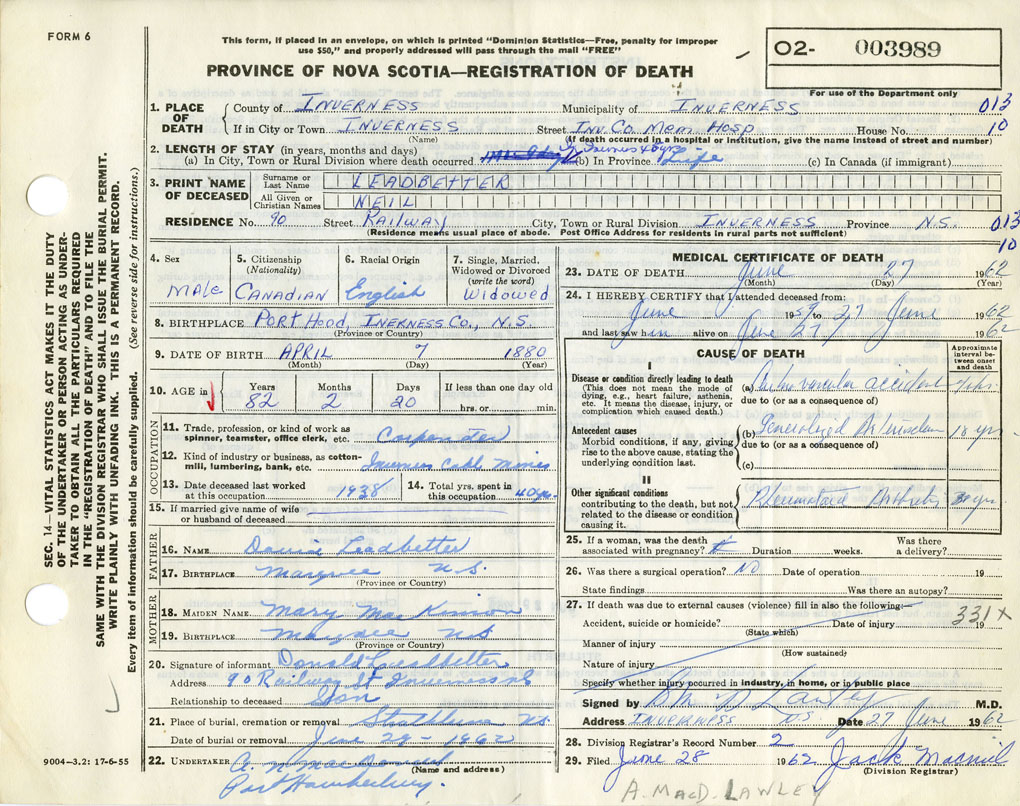 FORM 6
This form, if placed in an envelope, on which is printed "Dominion Statistics—Free, penalty for improper
use $50," and properly addressed will pass through the mail "FREE"
PROVINCE OF NOVA SCOTIA—REGISTRATION OF DEATH
02- 003989
For use of the Department only
1. PLACE OF DEATH
County of INVERNESS Municipality of INVERNESS 013
If in City or Town INVERNESS Street INV. CO. MEM. HOSP House No. 10
(Name) (If death occurred in a hospital or institution, give the name instead of street and number)
2. LENGTH OF STAY (in years, months and days)
(a) In City, Town or Rural Division where death occurred (b) In Province Life (c) In Canada (if immigrant)
3. PRINT NAME OF DECEASED
Surname or Last Name LEADBETTER
All Given or Christian Names NEIL
RESIDENCE No. 90 Street RAILWAY City, Town or Rural Division INVERNESS Province N.S. 013
(Residence means usual place of abode. Post Office Address for residents in rural parts not sufficient) 10
4. Sex MALE
5. Citizenship (Nationality) CANADIAN
6. Racial Origin English
7. Single, Married, Widowed or Divorced (write the word) WIDOWED
8. BIRTHPLACE PORT HOOD, INERNESS CO., N.S.
(Province or Country)
9. DATE OF BIRTH APRIL 7 1880
(Month) (Day) (Year)
10. AGE in Years 82 Months 2 Days 20 If less than one day old hrs. or min.
OCCUPATION
11. Trade, profession, or kind of work as spinner, teamster, office clerk, etc. Carpenter
12. Kind of industry or business, as cotton-mill, lumbering, bank, etc. Inverness Mines
13. Date deceased last worked at this occupation 1938
14. Total yrs. spent in this occupation 40 yrs.
15. If married give name of wife or husband of deceased
FATHER
16. NAME Leadbetter
17. BIRTHPLACE Margaree N.S.
(Province or Country)
MOTHER
18. MAIDEN NAME Mary Mac Kinnon
19. BIRTHPLACE Margaree N.S.
(Province or Country)
20. Signature of informant Donald Leadbetter
Address 90 Railway St Inverness NS
Relationship to deceased Son
21. Place of burial, cremation or removal Strathlorne N.S.
Date of burial or removal June 29 - 1962
22. UNDERTAKER
(Name and address)
Port Hawkesbury.
MEDICAL CERTIFICATE OF DEATH
23. DATE OF DEATH June 27 1962
(Month) (Day) (Year)
24. I HEREBY CERTIFY that I attended deceased from:
June 1959 to 27 June 1962
and last saw him alive on June 27 1962
CAUSE OF DEATH
Approximate interval between onset and death
I
Disease or condition directly leading to death
(This does not mean the mode of dying, e.g., heart failure, asthenia, etc. It means the disease, injury, or complication which caused death.)
(a) accident
due to (or as a consequence of)
Antecedent causes
Morbid conditions, if any, giving rise to the above cause, stating the underlying condition last.
(b) Generalized 18 yrs.
due to (or as a consequence of)
(c)
II
Other significant conditions contributing to the death, but not related to the disease or condition causing it.
Rheumatoid Arthritis yrs.
25. If a woman, was the death associated with pregnancy? Duration weeks. Was there a delivery?
26. Was there a surgical operation? No Date of operation 19
State findings Was there an autopsy?
27. If death was due to external causes (violence) fill in also the following:— 331X
Accident, suicide or homicide? Date of injury 19
(State which)
Manner of injury
(How sustained)
Nature of injury
Specify whether injury occurred in industry, in home, or in public place
Signed by Lawley M.D.
Address INVERNESS N.S. Date 27 June 1962
28. Division Registrar's Record Number 2
29. Filed June 28 1962 Jack Macneil
(Division Registrar)
A. MACD. LAWLEY
SEC. 14—VITAL STATISTICS ACT MAKES IT THE DUTY
OF THE UNDERTAKER OR PERSON ACTING AS UNDER-
TAKER TO OBTAIN ALL THE PARTICULARS REQUIRED
IN THE "REGISTRATION OF DEATH" AND TO FILE THE
SAME WITH THE DIVISION REGISTRAR WHO SHALL ISSUE THE BURIAL PERMIT.
WRITE PLAINLY WITH UNFADING INK. THIS IS A PERMANENT RECORD.
Every item of information should be carefully supplied. (See reverse side for instructions.)
9004-3.2: 17-6-55